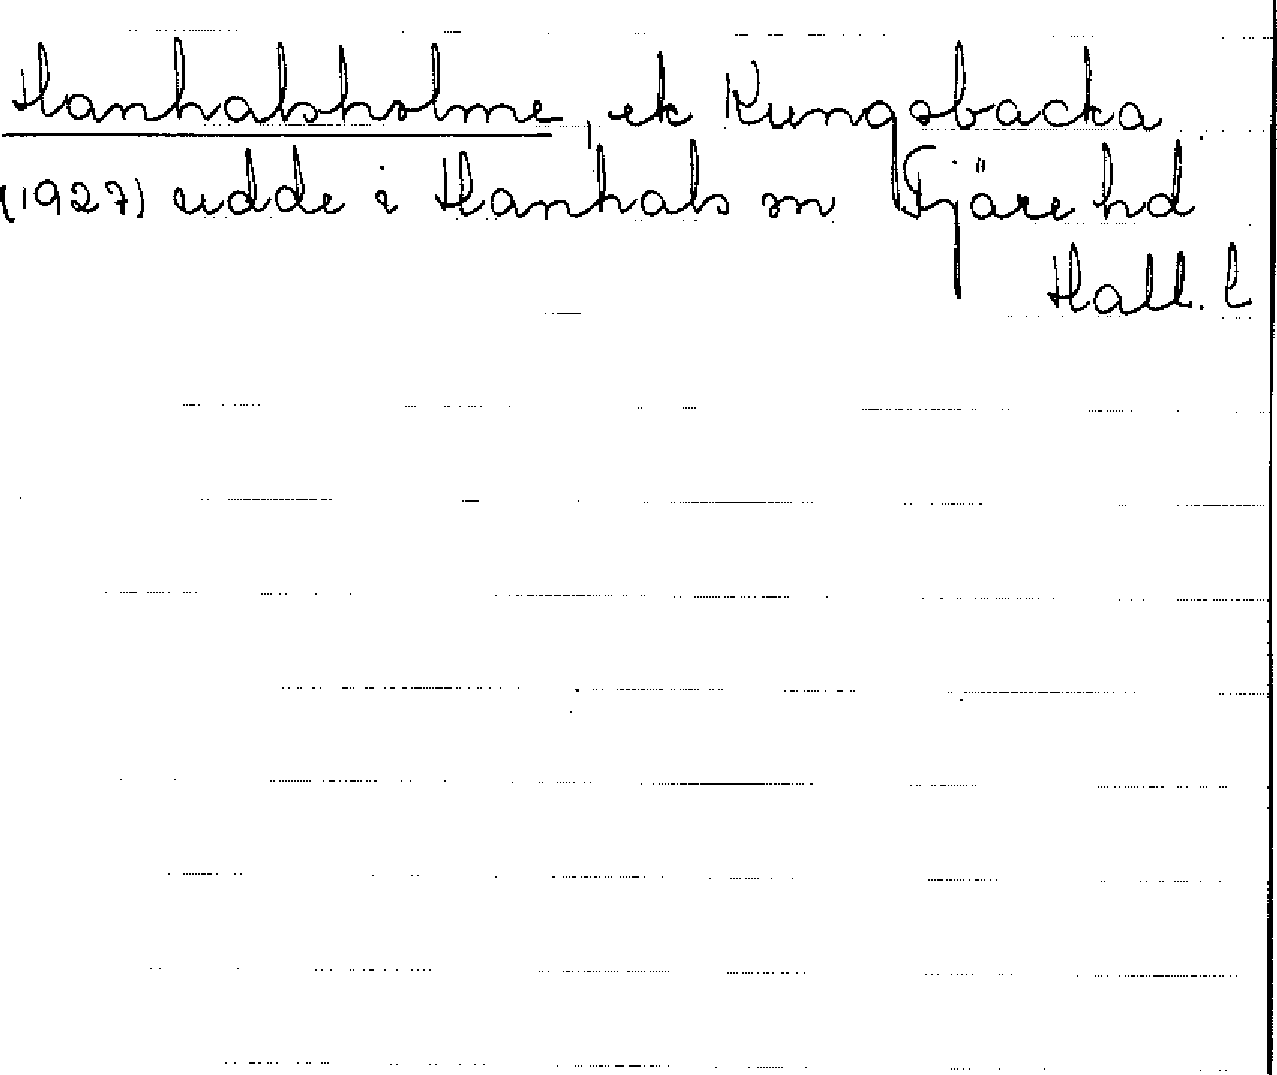 Hanhalsholme, ek Kungsbacka
(1927) udde i Hanhals sn Fjäre hd
Hall. l